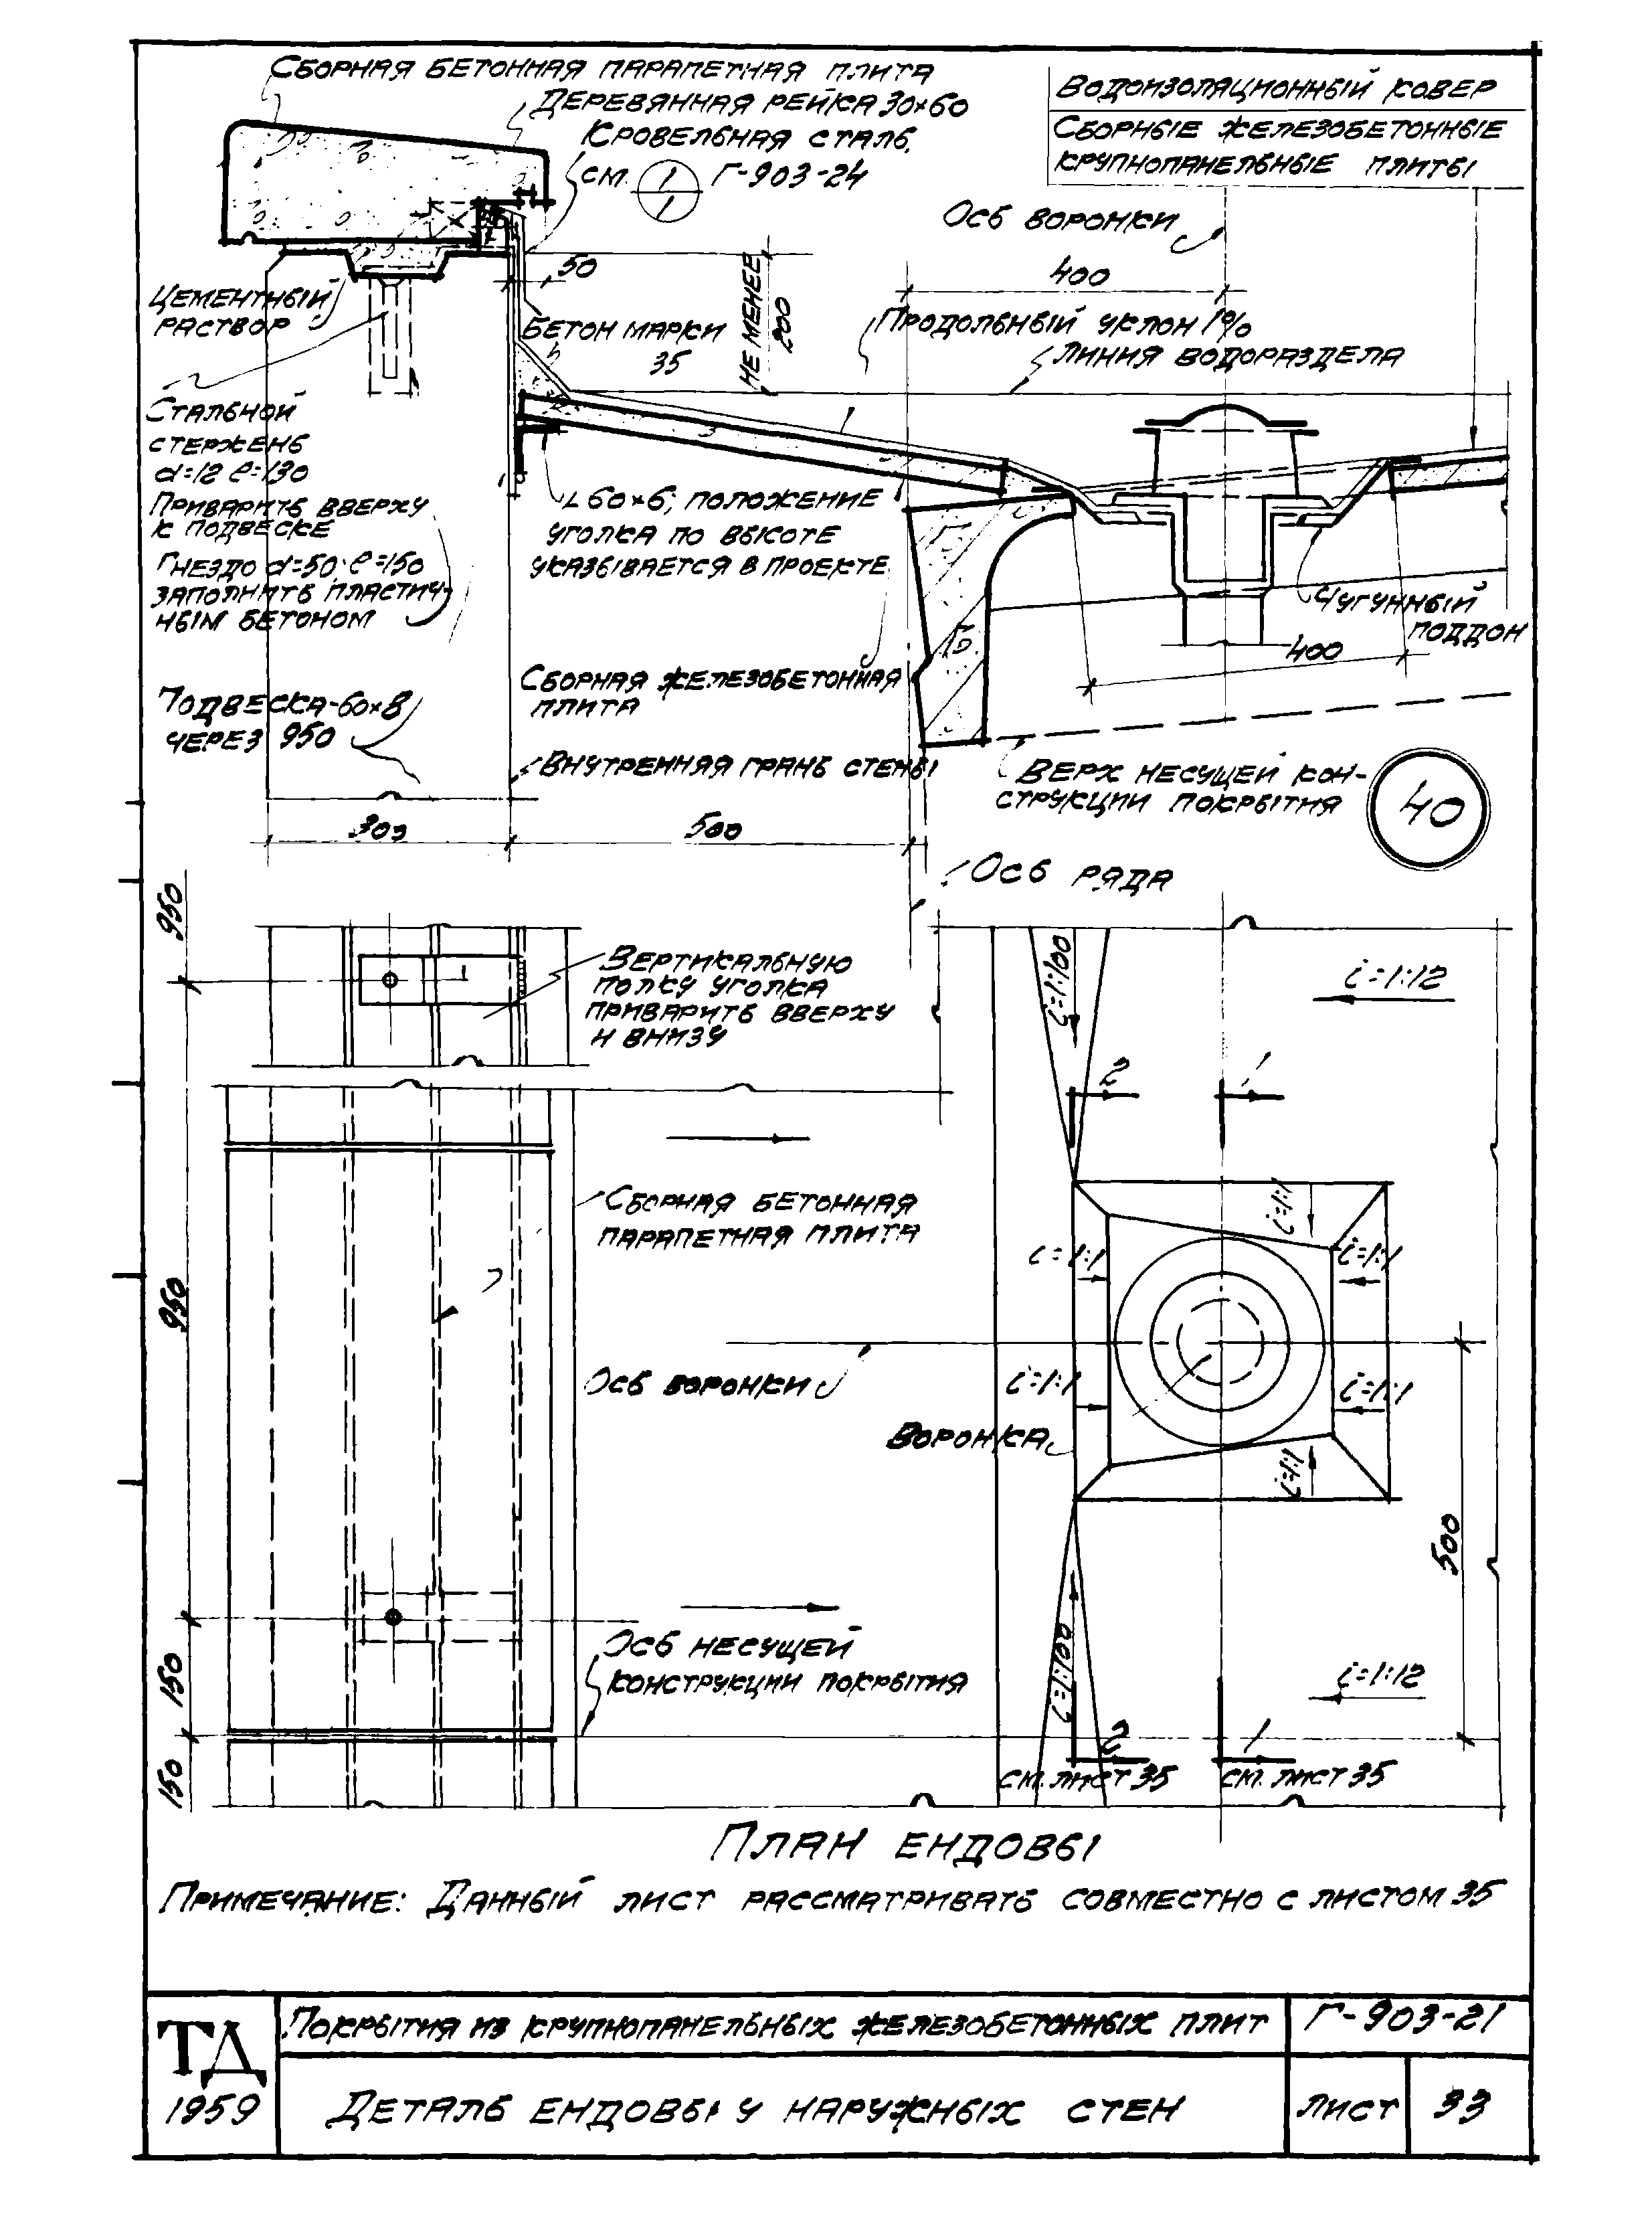 Сборная бетонная парапетная плита
Деревянная рейка 30×60
Кровельная сталь,
см. 1/1 Г-903-24
Водоизоляционный ковер
Сборные железобетонные
крупнопанельные плиты
Ось воронки
50
400
Не менее
200
Цементный
раствор
Бетон марки
35
Продольный уклон 1%
Линия водораздела
Стальной
стержень
d=12 ℓ=130
Приварить вверху
к подвеске
Гнездо d=50 ℓ=150
заполнить пластич-
ным бетоном
∟60×6; положение
уголка по высоте
указывается в проекте
Чугунный
поддон
400
Сборная железобетонная
плита
Подвеска-60×8
через 950
Внутренняя грань стены
Верх несущей кон-
струкции покрытия
40
300
500
Ось ряда
950
Вертикальную
полку уголка
приварить вверху
и внизу
i=1:100
i=1:12
2
1
Сборная бетонная
парапетная плита
i=1:1
i=1:1
i=1:1
950
Ось воронки
i=1:1
i=1:1
Воронка
i=1:1
500
Ось несущей
конструкции покрытия
150
i=1:100
i=1:12
150
2
1
см. лист 35
см. лист 35
План ендовы
Примечание: Данный лист рассматривать совместно с листом 35
ТД
1959
Покрытия из крупнопанельных железобетонных плит
Г-903-21
Деталь ендовы у наружных стен
лист
33